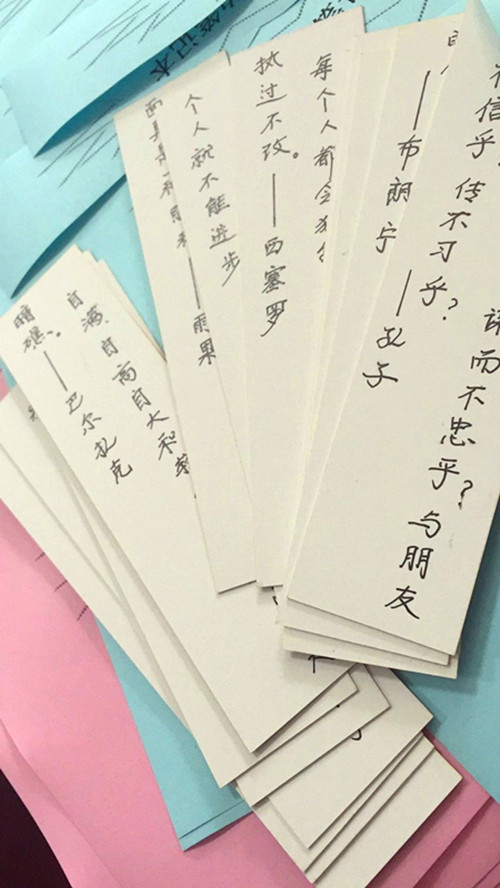 而不忠乎？与朋友
信乎？传不习乎？
——孔子
——布朗宁
每个人都会犯
执过不改。——西塞罗
个人就不能进步
——雨果
自满、自高自大和
暗礁。——巴尔扎克
笔记本